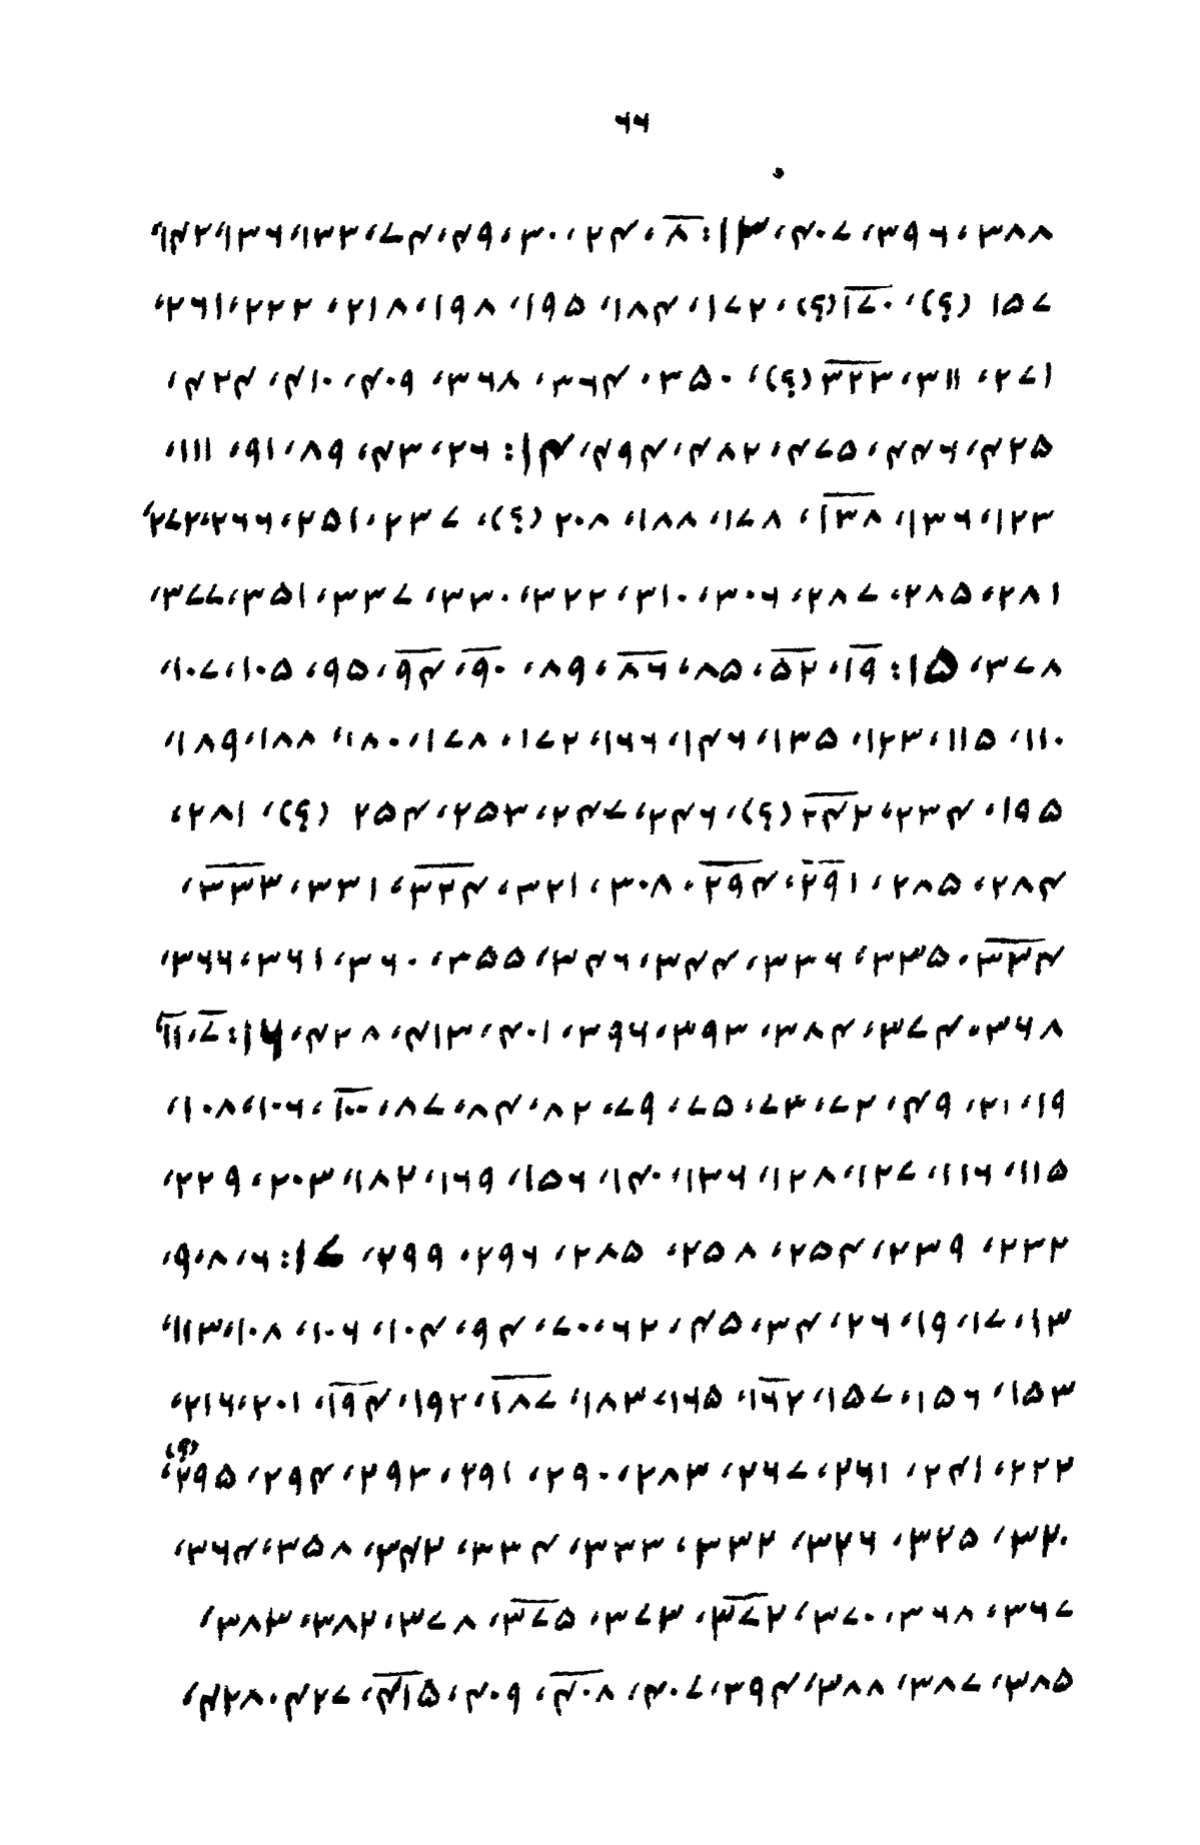 ۶۶
۳۸۸، ۳۹۶، ۴۰۷، ۱۳: ۸، ۲۴، ۳۰، ۴۹، ۷۴، ۱۳۳، ۱۳۶، ۱۴۲،
۱۵۷ (؟)، ۱۷۰ (؟)، ۱۷۲، ۱۸۴، ۱۹۵، ۱۹۸، ۲۱۸، ۲۲۲، ۲۶۱،
۲۷۱، ۳۱۱، ۳۲۳ (؟)، ۳۵۰، ۳۶۴، ۳۶۸، ۴۰۹، ۴۱۰، ۴۲۴،
۴۲۵، ۴۴۶، ۴۷۵، ۴۸۲، ۴۹۴، ۱۴: ۲۶، ۴۳، ۸۹، ۹۱، ۱۱۱،
۱۲۳، ۱۳۶، ۱۳۸، ۱۷۸، ۱۸۸، ۲۰۸ (؟)، ۲۳۷، ۲۵۱، ۲۶۶، ۲۷۲،
۲۸۱، ۲۸۵، ۲۸۷، ۳۰۶، ۳۱۰، ۳۲۲، ۳۳۰، ۳۳۷، ۳۵۱، ۳۷۷،
۳۷۸، ۱۵: ۱۹، ۵۲، ۸۵، ۸۶، ۸۹، ۹۰، ۹۴، ۹۵، ۱۰۵، ۱۰۷،
۱۱۰، ۱۱۵، ۱۲۳، ۱۳۵، ۱۴۶، ۱۶۶، ۱۷۲، ۱۷۸، ۱۸۰، ۱۸۸، ۱۸۹،
۱۹۵، ۲۳۴، ۲۴۲ (؟)، ۲۴۶، ۲۴۷، ۲۵۳، ۲۵۴ (؟)، ۲۸۱،
۲۸۴، ۲۸۵، ۲۹۱، ۲۹۴، ۳۰۸، ۳۲۱، ۳۲۴، ۳۳۱، ۳۳۳،
۳۳۴، ۳۳۵، ۳۳۶، ۳۴۴، ۳۴۶، ۳۵۵، ۳۶۰، ۳۶۱، ۳۶۶،
۳۶۸، ۳۷۴، ۳۸۴، ۳۹۳، ۳۹۶، ۴۰۱، ۴۱۳، ۴۲۸، ۱۶: ۷، ۱۱،
۱۹، ۲۱، ۴۹، ۷۲، ۷۳، ۷۵، ۷۹، ۸۲، ۸۴، ۸۷، ۱۰۰، ۱۰۶، ۱۰۸،
۱۱۵، ۱۱۶، ۱۲۷، ۱۲۸، ۱۳۶، ۱۴۰، ۱۵۶، ۱۶۹، ۱۸۲، ۲۰۳، ۲۲۹،
۲۳۲، ۲۳۹، ۲۵۴، ۲۵۸، ۲۸۵، ۲۹۶، ۲۹۹، ۱۷: ۶، ۸، ۹،
۱۳، ۱۷، ۱۹، ۲۶، ۳۴، ۴۵، ۶۲، ۷۰، ۹۴، ۱۰۴، ۱۰۶، ۱۰۸، ۱۱۳،
۱۵۳، ۱۵۶، ۱۵۷، ۱۶۲، ۱۶۵، ۱۸۳، ۱۸۷، ۱۹۲، ۱۹۴، ۲۰۱، ۲۱۶،
۲۲۲، ۲۴۱، ۲۶۱، ۲۶۷، ۲۸۳، ۲۹۰، ۲۹۱، ۲۹۳، ۲۹۴، ۲۹۵ (؟)،
۳۲۰، ۳۲۵، ۳۲۶، ۳۳۲، ۳۳۳، ۳۳۴، ۳۴۲، ۳۵۸، ۳۶۴،
۳۶۷، ۳۶۸، ۳۷۰، ۳۷۲، ۳۷۳، ۳۷۵، ۳۷۸، ۳۸۲، ۳۸۳،
۳۸۵، ۳۸۷، ۳۸۸، ۳۹۴، ۴۰۷، ۴۰۸، ۴۰۹، ۴۱۵، ۴۲۷، ۴۲۸،